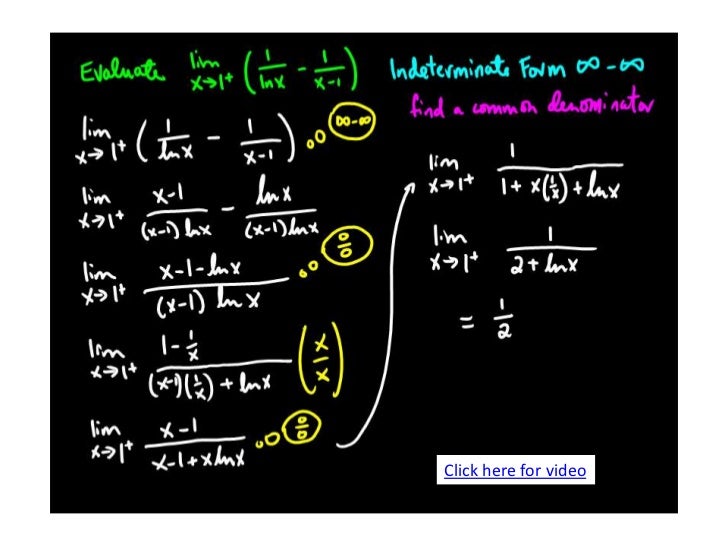 Evaluate lim x→1⁺ (1/lnx - 1/x-1)
Indeterminate Form ∞-∞
find a common denominator
lim x→1⁺ (1/lnx - 1/x-1) ∞-∞
lim x→1⁺ x-1/(x-1)lnx - lnx/(x-1)lnx
lim x→1⁺ x-1-lnx/(x-1) lnx 0/0
lim x→1⁺ 1-1/x/(x-1)(1/x)+lnx (x/x)
lim x→1⁺ x-1/x-1+xlnx 0/0
lim x→1⁺ 1/1+x(1/x)+lnx
lim x→1⁺ 1/2+lnx
= 1/2
Click here for video